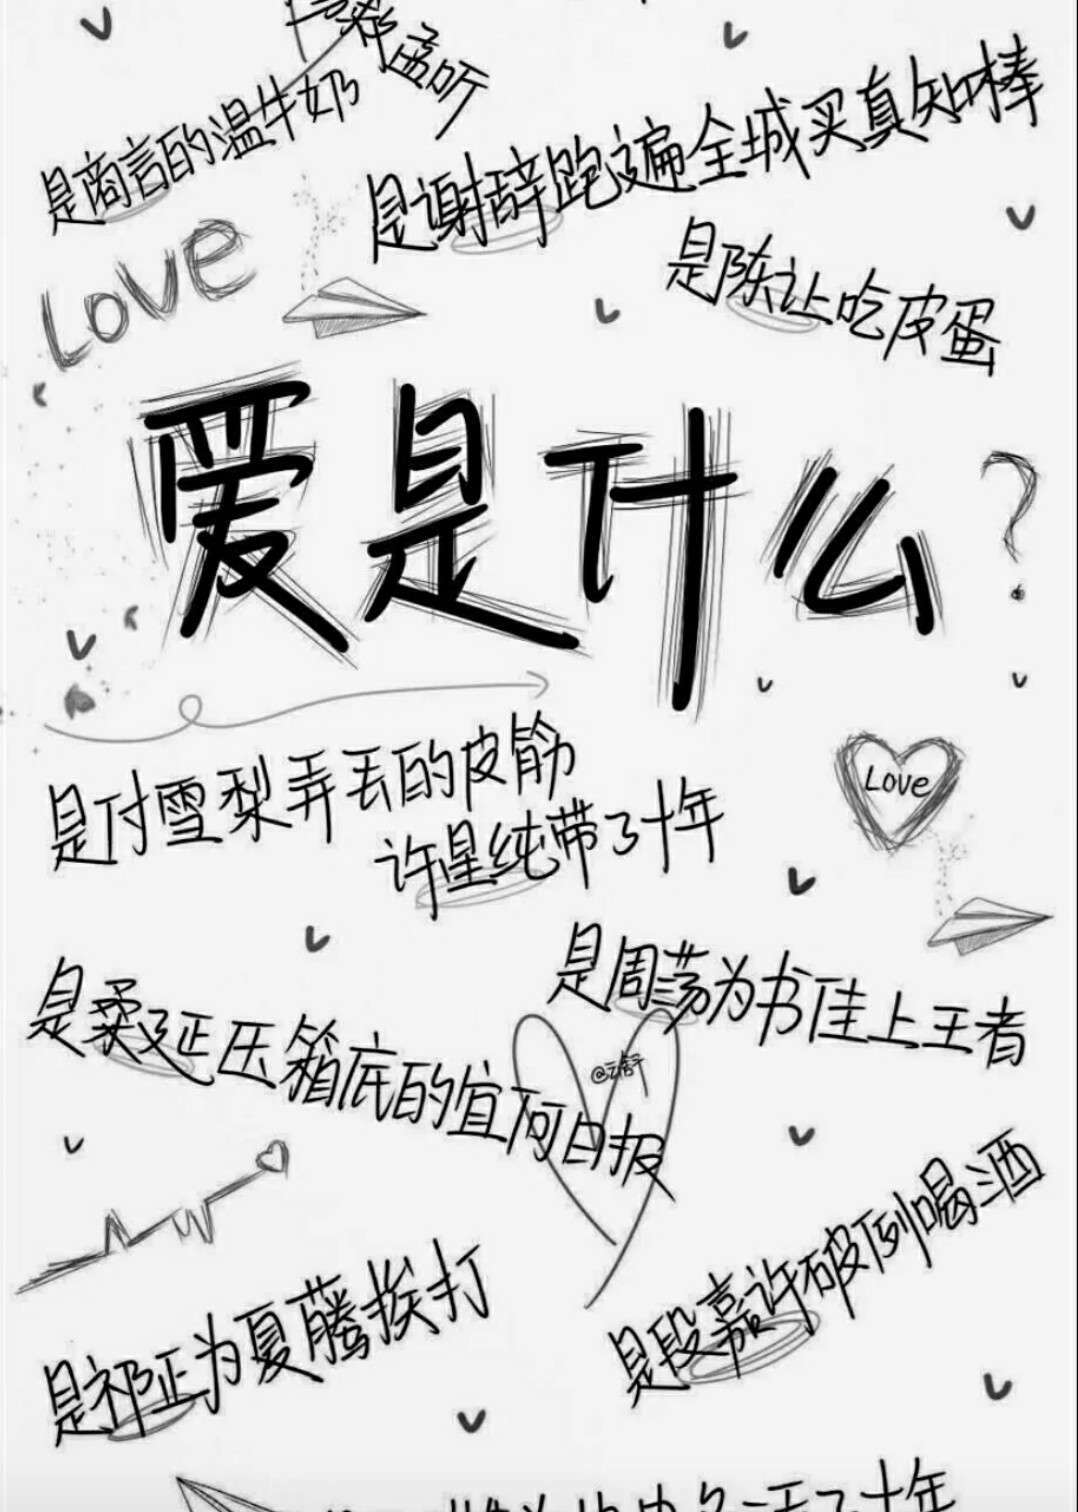 孟听
是商言的温牛奶
是谢辞跑遍全城买真知棒
是陈让吃皮蛋
Love
爱是什么?
是付雪梨弄丢的皮筋
许星纯带了十年
Love
是周荡为书佳上王者
是柔延压箱底的宜荷日报
@云舒
是段嘉许破例喝酒
是祁正为夏藤挨打
十年